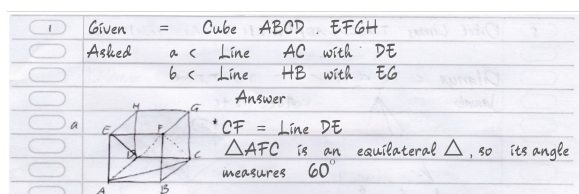 1 Given = Cube ABCD . EFGH
Asked a < Line AC with DE
b < Line HB with EG
Answer
a
H G
E F
D C
A B
* CF = Line DE
△AFC is an equilateral △, so its angle
measures 60°